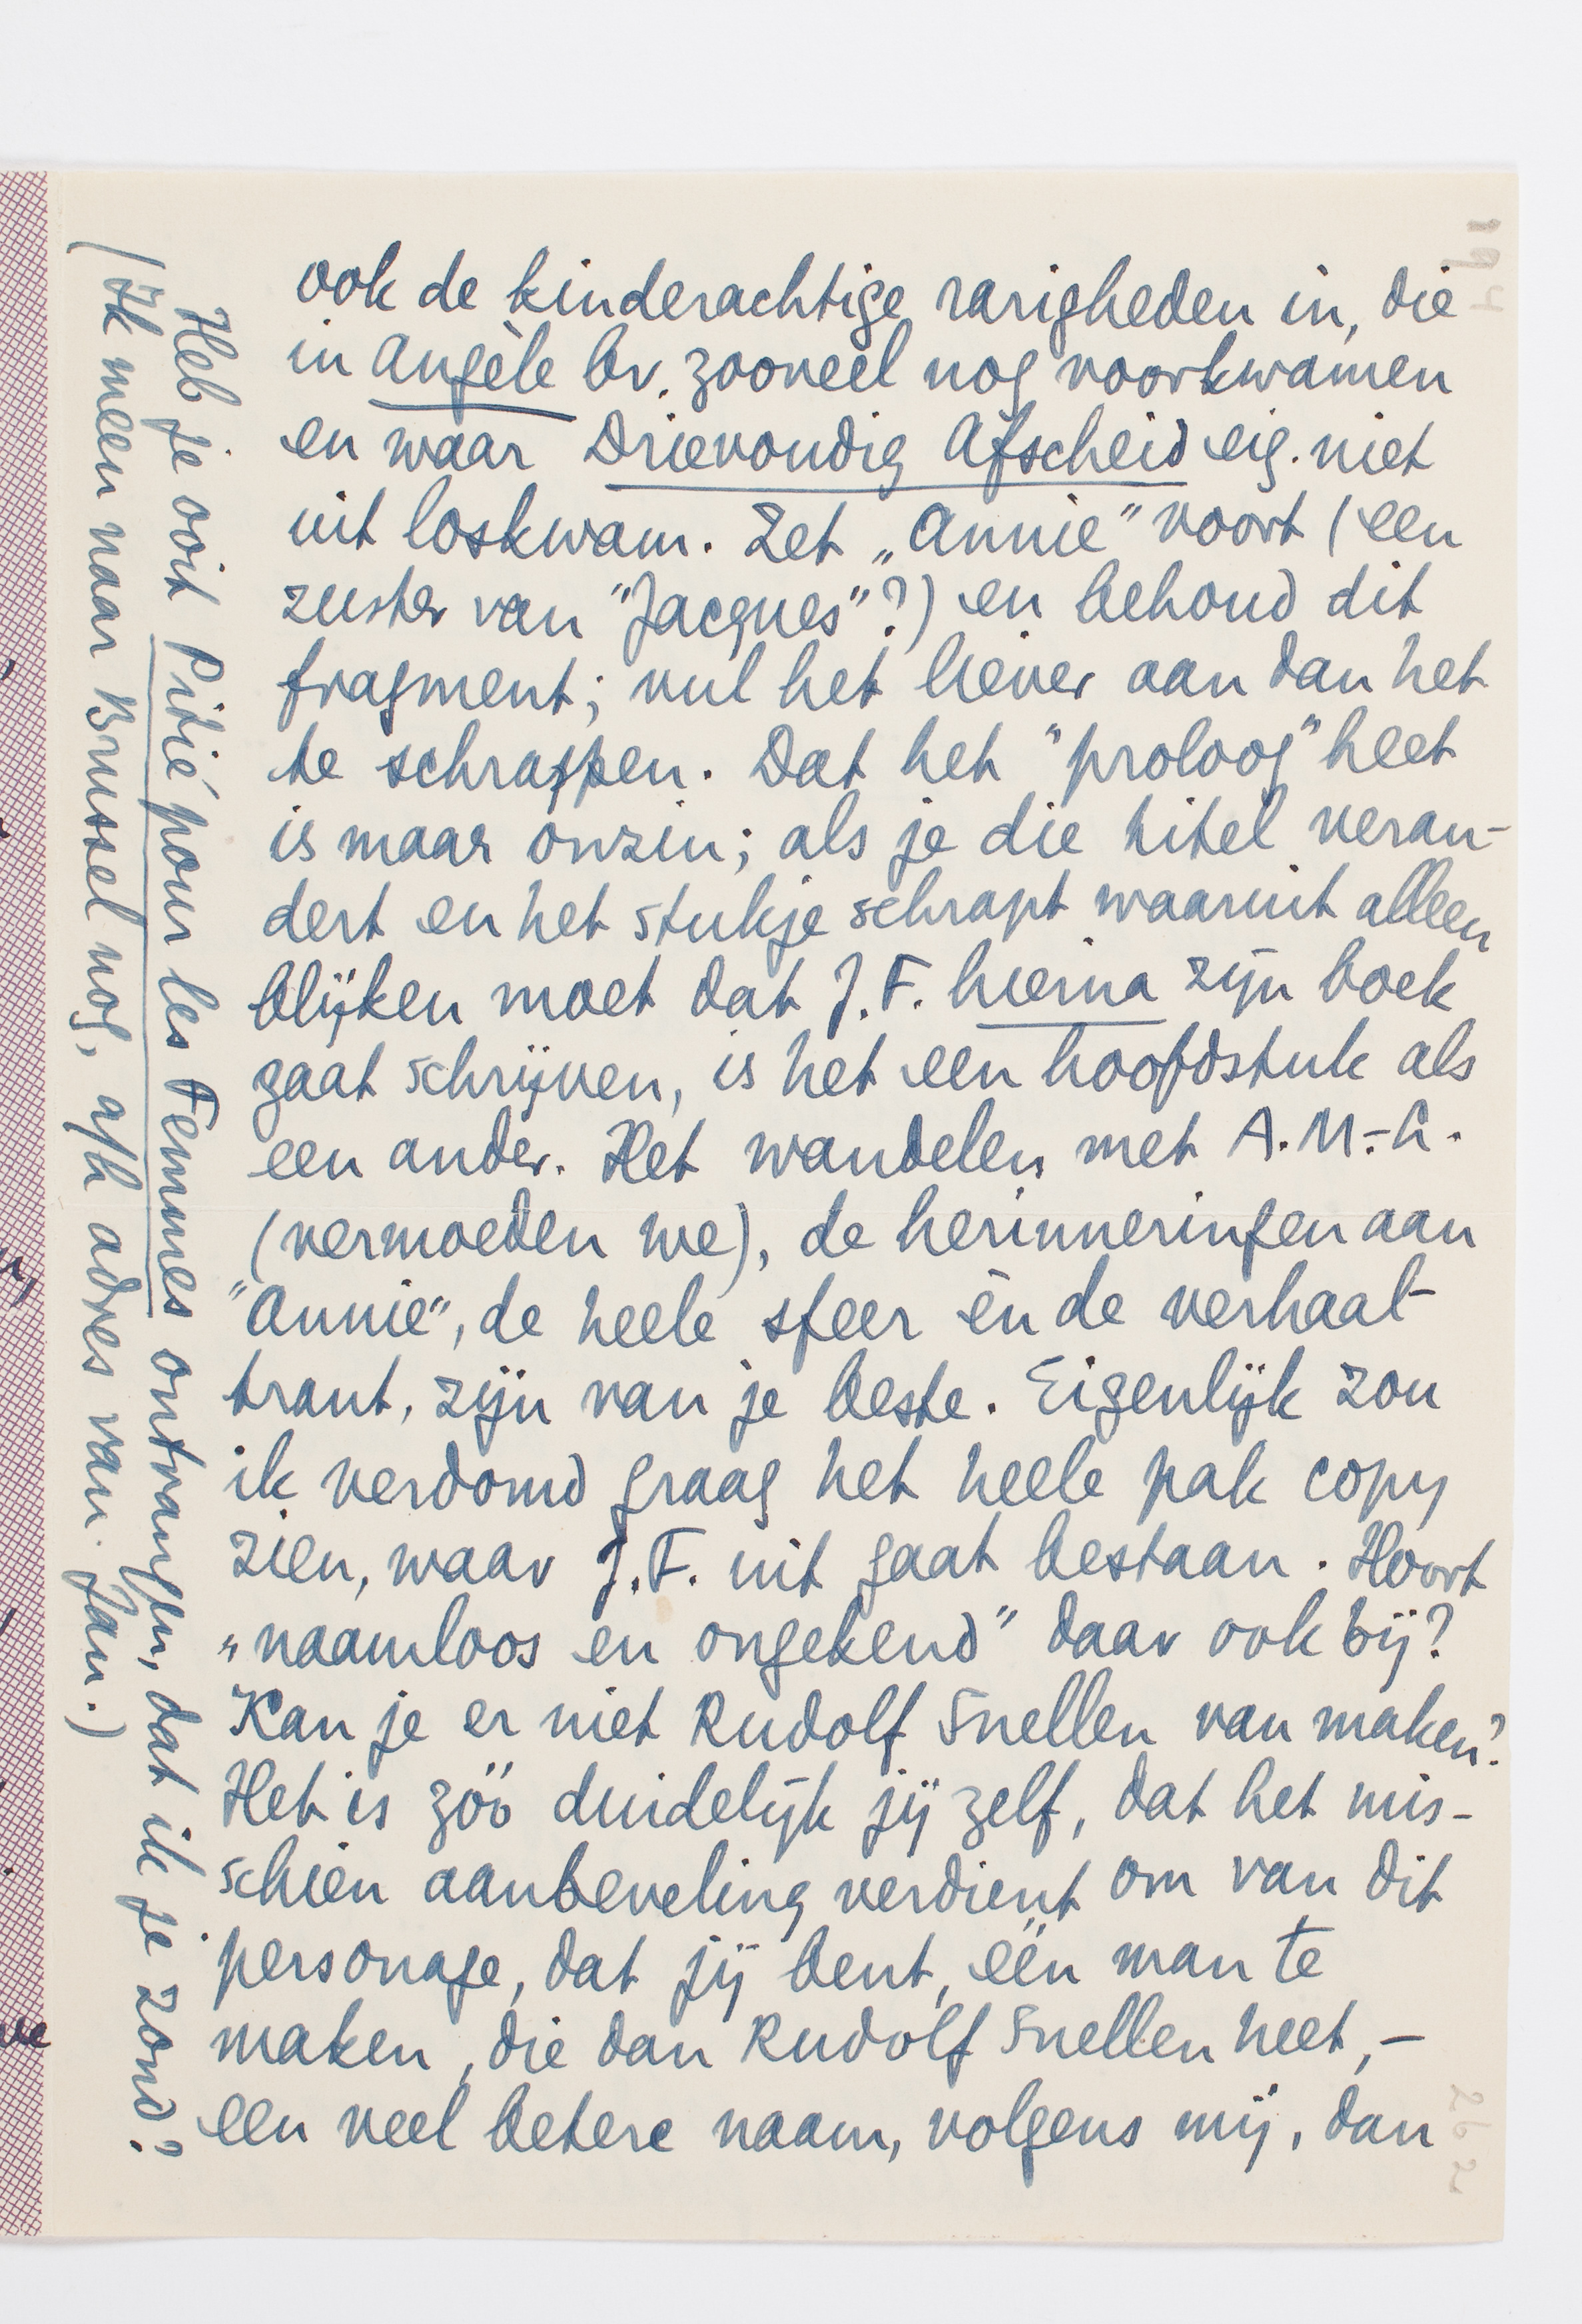 ook de kinderachtige rarigheden in, die
in Angèle bv. zooveel nog voorkwamen
en waar Drievoudig Afscheid eig. niet
uit loskwam. Zet „Annie” voort (een
zuster van "Jacques"?) en behoud dit
fragment; vul het liever aan dan het
te schrappen. Dat het "proloog" heet
is maar onzin; als je die titel veran-
dert en het stukje schrapt waaruit alleen
blijken moet dat J.F. hierna zijn boek
gaat schrijven, is het een hoofdstuk als
een ander. Het wandelen met A.M.-C.
(vermoeden we), de herinneringen aan
"Annie", de heele sfeer èn de verhaal-
trant, zijn van je beste. Eigenlijk zou
ik verdomd graag het heele pak copy
zien, waar J.F. uit gaat bestaan. Hoort
„naamloos en ongekend” daar ook bij?
Kan je er niet Rudolf Snellen van maken?
Het is zóó duidelijk jij zelf, dat het mis-
schien aanbeveling verdient om van dit
personage, dat jij bent, één man te
maken, die dan Rudolf Snellen heet, –
een veel betere naam, volgens mij, dan
Heb je ooit Pitié pour les Femmes ontvangen, dat ik je zond?
(Ik meen naar Brussel nog, a/h adres van Jan.)
194
262